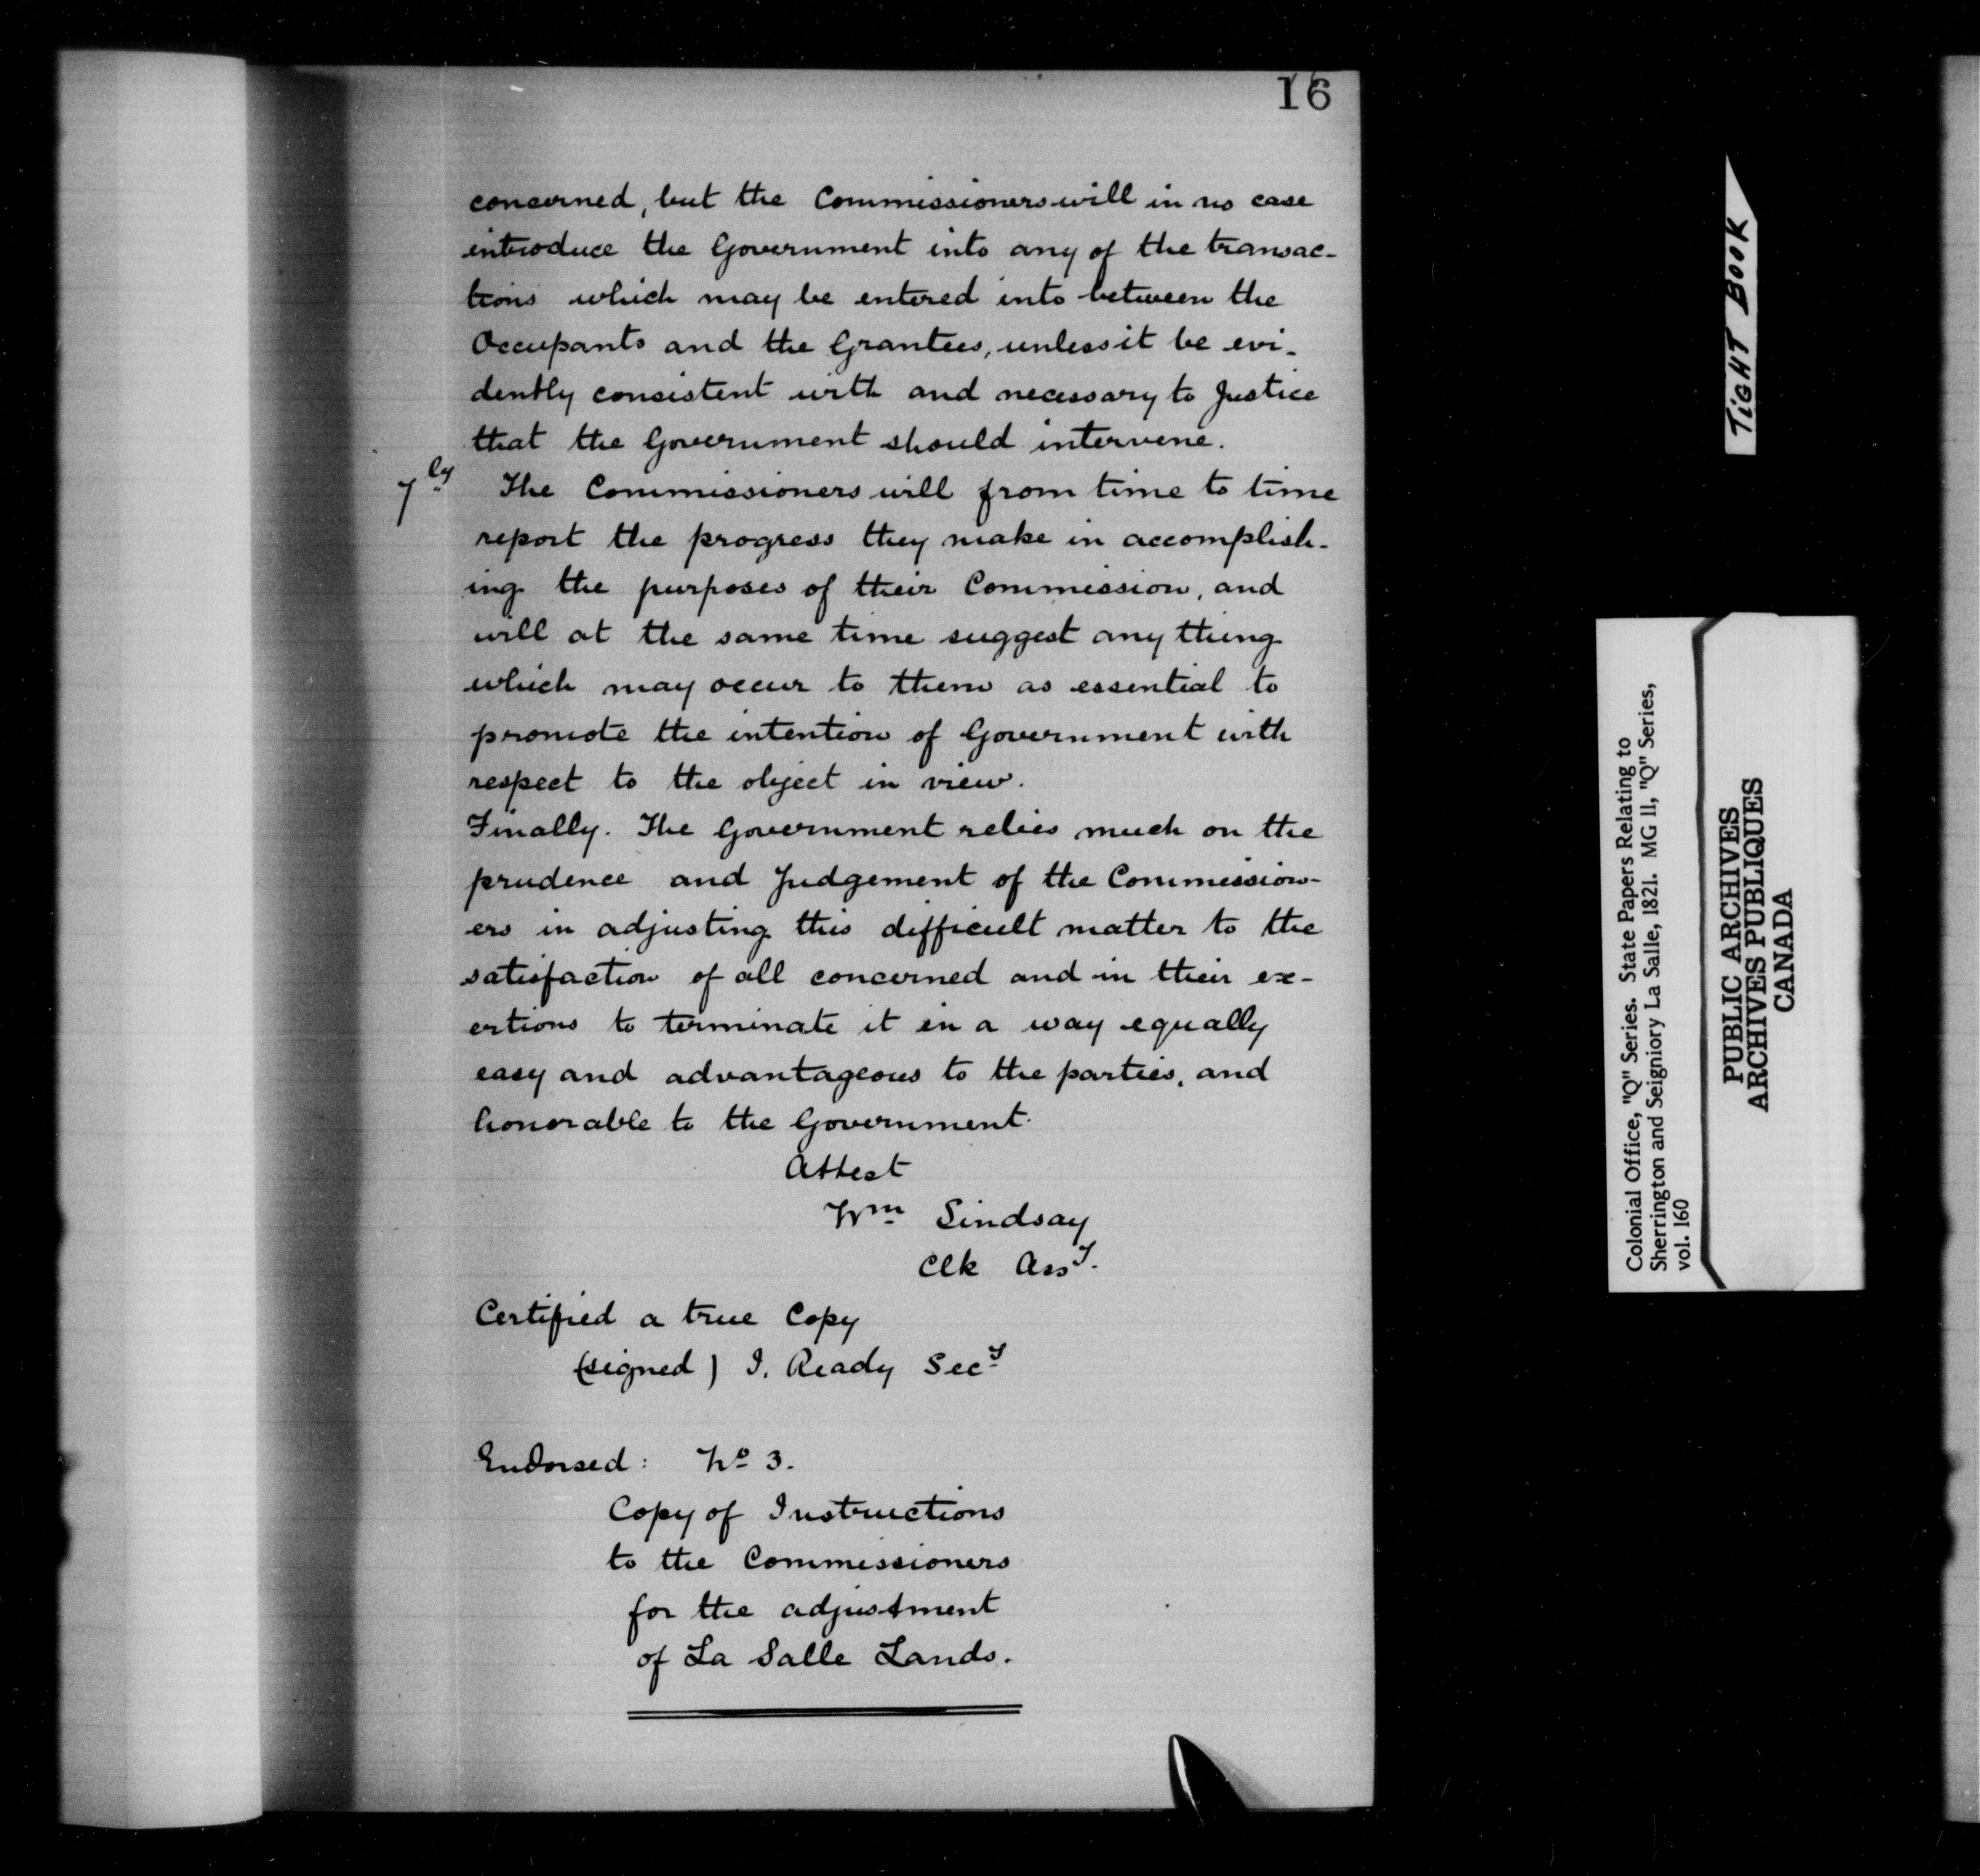 16
concerned, but the Commissioners will in no case
introduce the Government into any of the transac-
tions which may be entered into between the
Occupants and the Grantees, unless it be evi-
dently consistent with and necessary to Justice
that the Government should intervene.
7ly The Commissioners will from time to time
report the progress they make in accomplish-
ing the purposes of their Commission, and
will at the same time suggest any thing
which may occur to them as essential to
promote the intention of Government with
respect to the object in view.
Finally. The Government relies much on the
prudence and Judgement of the Commission-
ers in adjusting this difficult matter to the
satisfaction of all concerned and in their ex-
ertions to terminate it in a way equally
easy and advantageous to the parties, and
honorable to the Government.
Attest
Wm Lindsay
Clk Assy.
Certified a true Copy
(signed) J. Ready Secy
Endorsed: No 3.
Copy of Instructions
to the Commissioners
for the adjustment
of La Salle Lands.
TIGHT BOOK
Colonial Office, "Q" Series. State Papers Relating to
Sherrington and Seigniory La Salle, 1821. MG 11, "Q" Series,
vol. 160
PUBLIC ARCHIVES
ARCHIVES PUBLIQUES
CANADA